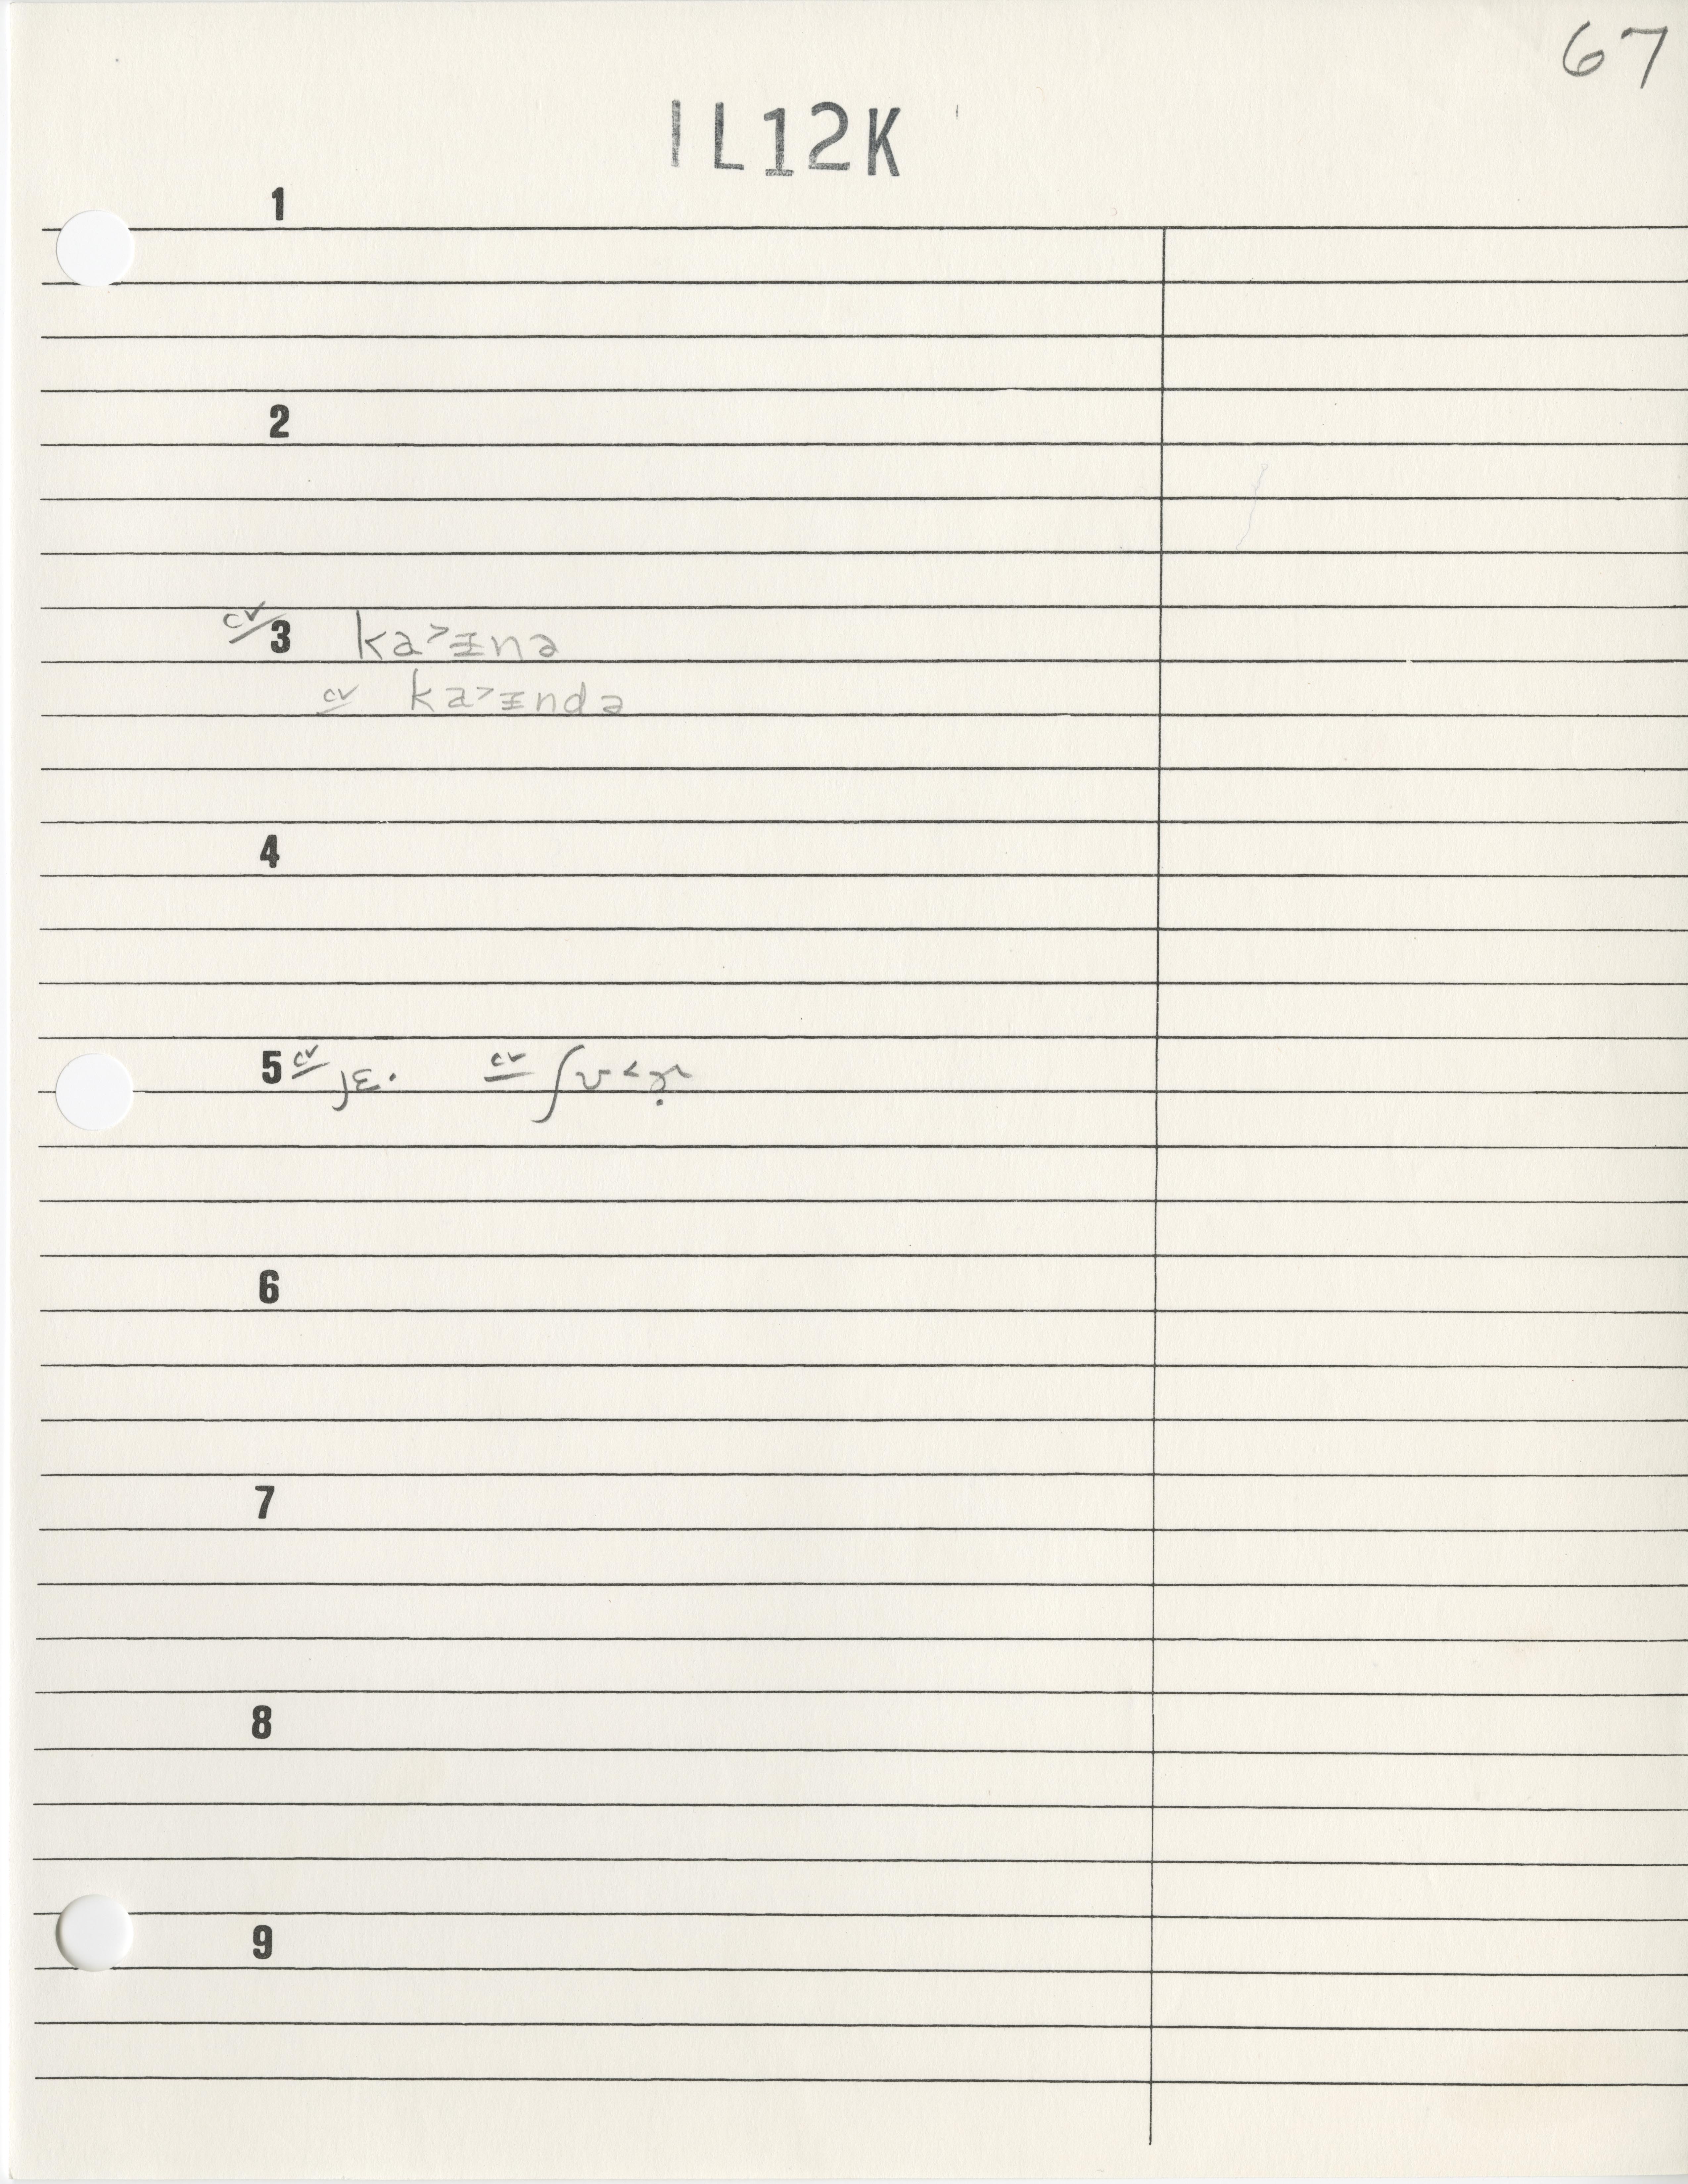 67
1L12K
1
2
cv 3 ka˃ɪ̵nə
cv ka˃ɪ̵ndə
4
5 cv ȷɛ· cv ʃʊ˂ɚ̣
6
7
8
9